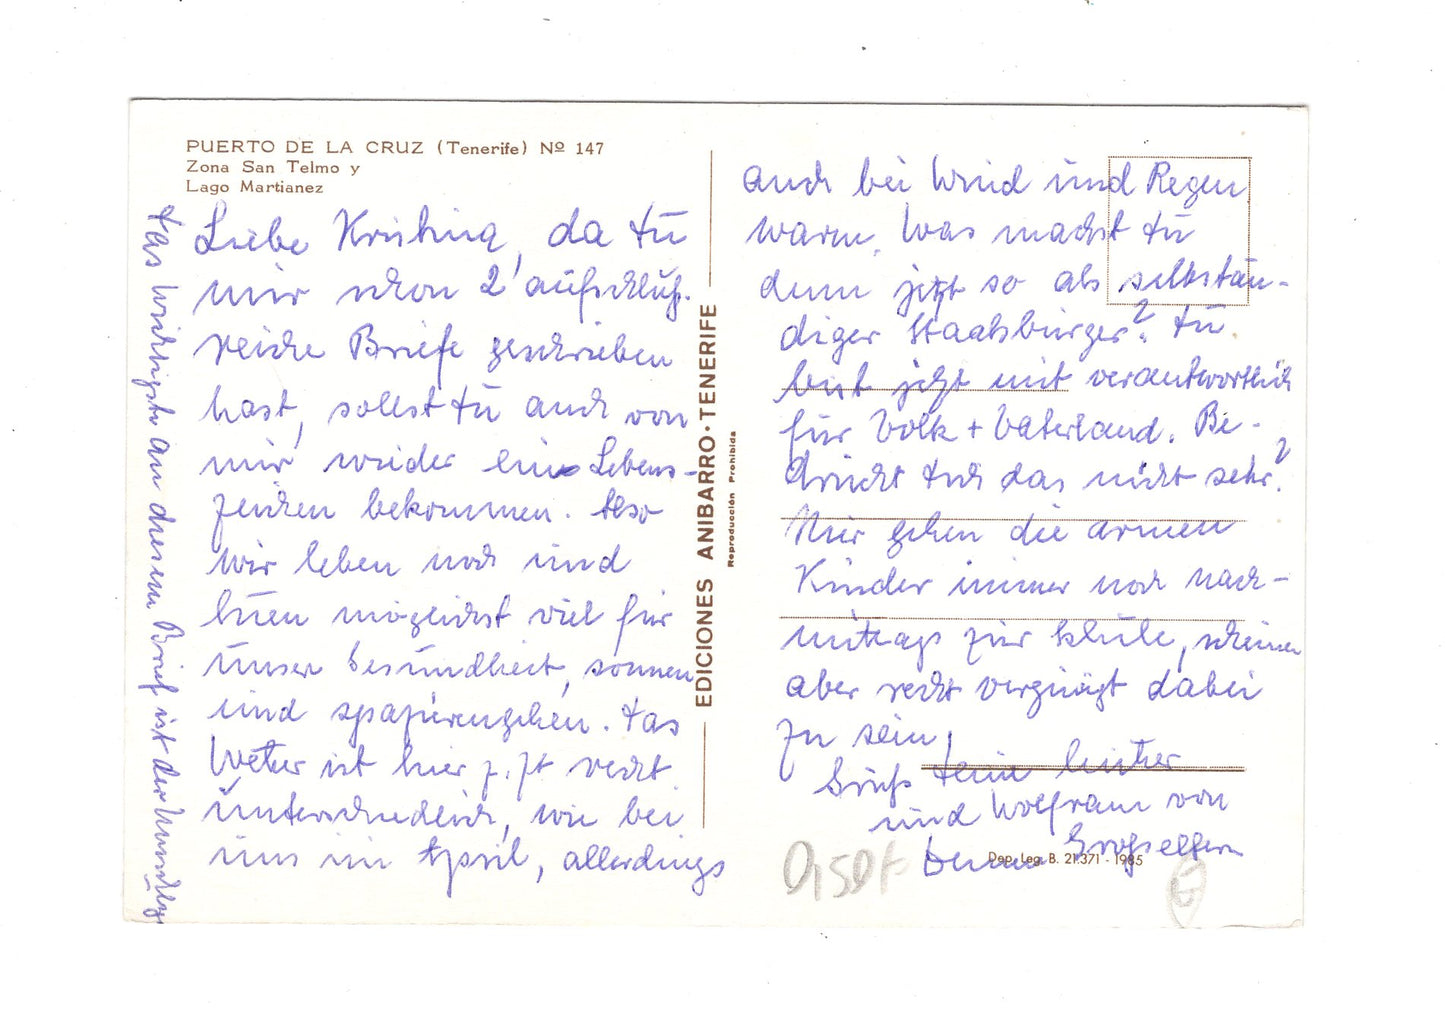 PUERTO DE LA CRUZ (Tenerife) Nº 147
Zona San Telmo y
Lago Martianez
Liebe Kristina, da Du
mir schon 2 aufschluß-
reiche Briefe geschrieben
hast, sollst Du auch von
mir wieder ein Lebens-
zeichen bekommen. Also
wir leben noch und
tuen möglichst viel für
unser Gesundheit, sonnen
und spazierengehen. Das
Wetter ist hier z. Zt recht
unterschiedlich, wie bei
uns im April, allerdings
auch bei Wind und Regen
warm. Was machst Du
denn jetzt so als selbstän-
diger Staatsbürger? Du
bist jetzt mit verantwortlich
für Volk + Vaterland. Be-
drückt Dich das nicht sehr?
Hier gehen die armen
Kinder immer noch nach-
mittags zur Schule, scheinen
aber recht vergnügt dabei
zu sein!
Gruß Deine
und Wolfram von
Deinen Großeltern
Das wichtigste an diesem Brief ist der Umschlag
EDICIONES ANIBARRO · TENERIFE
Reproducción Prohibida
Dep. Leg. B. 21.371 - 1985
0,50